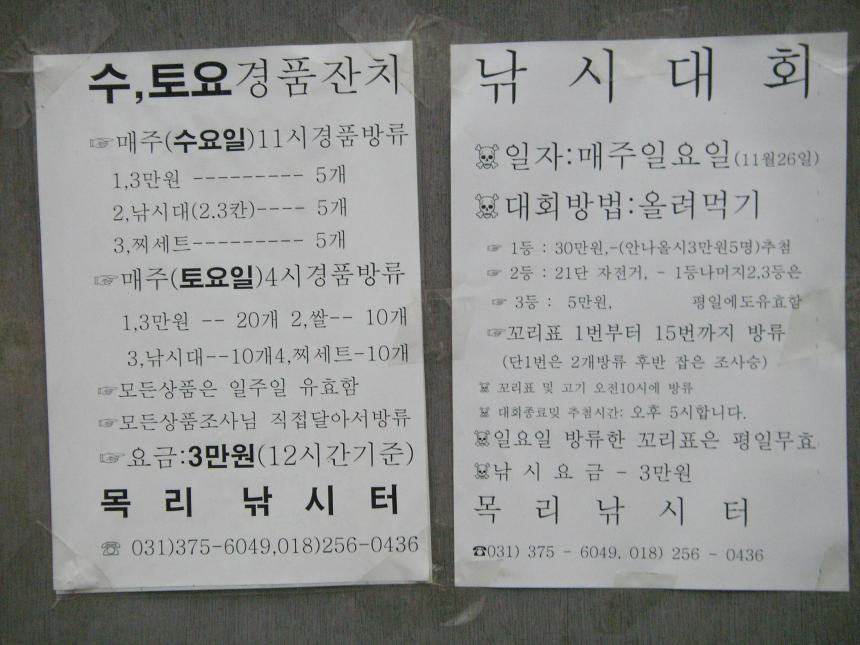 수,토요경품잔치
☞매주(수요일)11시경품방류
1,3만원 --------- 5개
2,낚시대(2.3칸)---- 5개
3,찌세트--------- 5개
☞매주(토요일)4시경품방류
1,3만원 -- 20개 2,쌀-- 10개
3,낚시대--10개4,찌세트-10개
☞모든상품은 일주일 유효함
☞모든상품조사님 직접달아서방류
☞요금:3만원(12시간기준)
목 리 낚 시 터
☏ 031)375-6049,018)256-0436
낚 시 대 회
☠일자:매주일요일(11월26일)
☠대회방법:올려먹기
☞ 1등 : 30만원,-(안나올시3만원5명)추첨
☞ 2등 : 21단 자전거, - 1등나머지2,3등은
☞ 3등 : 5만원, 평일에도유효함
☞꼬리표 1번부터 15번까지 방류
(단1번은 2개방류 후반 잡은 조사승)
☠ 꼬리표 및 고기 오전10시에 방류
☠ 대회종료및 추첨시간: 오후 5시합니다.
☠일요일 방류한 꼬리표은 평일무효
☠낚 시 요 금 - 3만원
목 리 낚 시 터
☎031) 375 - 6049, 018) 256 - 0436